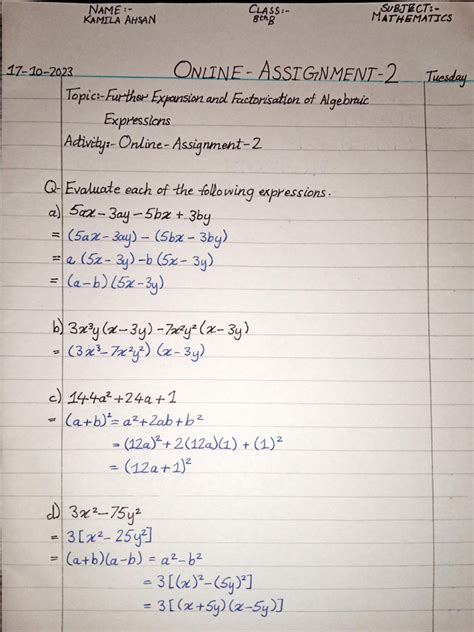 NAME:- CLASS:- SUBJECT:-
KAMILA AHSAN 8thB MATHEMATICS
17-10-2023 ONLINE-ASSIGNMENT-2 Tuesday
Topic:-Further Expansion and Factorisation of Algebraic
Expressions
Activity:- Online-Assignment-2
Q- Evaluate each of the following expressions.
a) 5ax-3ay-5bx+3by
= (5ax-3ay)-(5bx-3by)
= a (5x-3y)-b(5x-3y)
= (a-b)(5x-3y)
b) 3x³y(x-3y)-7x²y²(x-3y)
= (3x³-7x²y²)(x-3y)
c) 144a²+24a+1
= (a+b)²= a²+2ab+b²
= (12a)²+2(12a)(1)+(1)²
= (12a+1)²
d) 3x²-75y²
= 3[x²-25y²]
= (a+b)(a-b) = a²-b²
= 3[(x)²-(5y)²]
= 3[(x+5y)(x-5y)]